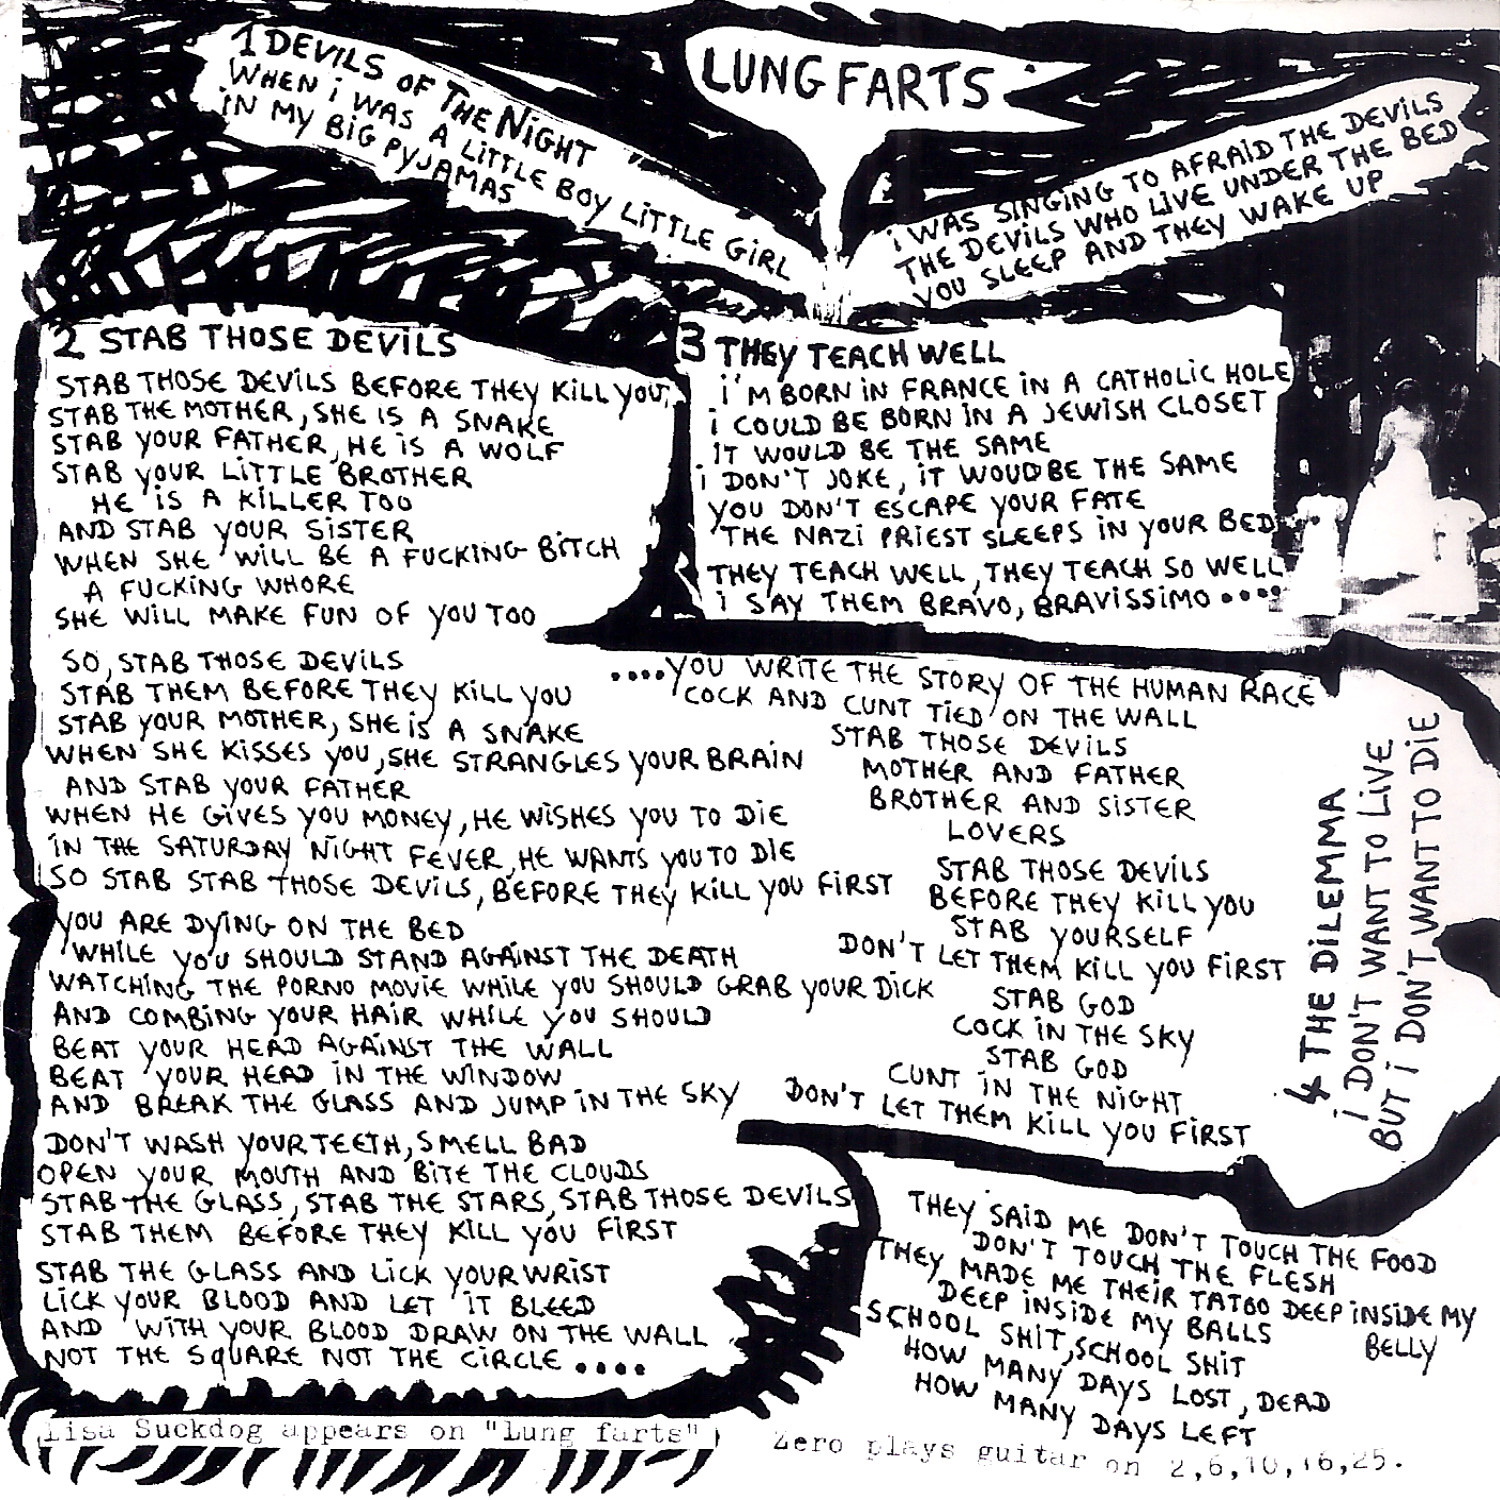 LUNG FARTS
1 DEVILS OF THE NIGHT
WHEN i WAS A LiTTLE BOY LiTTLE GiRL
iN MY BiG PYJAMAS
i WAS SiNGiNG TO AFRAiD THE DEViLS
THE DEViLS WHO LiVE UNDER THE BED
YOU SLEEP AND THEY WAKE UP
2 STAB THOSE DEViLS
STAB THOSE DEViLS BEFORE THEY KiLL YOU,
STAB THE MOTHER, SHE iS A SNAKE
STAB YOUR FATHER, HE iS A WOLF
STAB YOUR LiTTLE BROTHER
HE iS A KiLLER TOO
AND STAB YOUR SiSTER
WHEN SHE WiLL BE A FUCKiNG BiTCH
A FUCKiNG WHORE
SHE WiLL MAKE FUN OF YOU TOO
SO, STAB THOSE DEViLS
STAB THEM BEFORE THEY KiLL YOU
STAB YOUR MOTHER, SHE iS A SNAKE
WHEN SHE KiSSES YOU, SHE STRANGLES YOUR BRAiN
AND STAB YOUR FATHER
WHEN HE GiVES YOU MONEY, HE WiSHES YOU TO DiE
iN THE SATURDAY NiGHT FEVER, HE WANTS YOU TO DiE
SO STAB STAB THOSE DEViLS, BEFORE THEY KiLL YOU FiRST
YOU ARE DYiNG ON THE BED
WHiLE YOU SHOULD STAND AGAiNST THE DEATH
WATCHiNG THE PORNO MOViE WHiLE YOU SHOULD GRAB YOUR DiCK
AND COMBiNG YOUR HAiR WHiLE YOU SHOULD
BEAT YOUR HEAD AGAiNST THE WALL
BEAT YOUR HEAD iN THE WiNDOW
AND BREAK THE GLASS AND JUMP iN THE SKY
DON'T WASH YOUR TEETH, SMELL BAD
OPEN YOUR MOUTH AND BiTE THE CLOUDS
STAB THE GLASS, STAB THE STARS, STAB THOSE DEViLS
STAB THEM BEFORE THEY KiLL YOU FiRST
STAB THE GLASS AND LiCK YOUR WRiST
LiCK YOUR BLOOD AND LET iT BLEED
AND WiTH YOUR BLOOD DRAW ON THE WALL
NOT THE SQUARE NOT THE CiRCLE ....
3 THEY TEACH WELL
i'M BORN iN FRANCE iN A CATHOLiC HOLE
i COULD BE BORN iN A JEWiSH CLOSET
iT WOULD BE THE SAME
i DON'T JOKE, iT WOUD BE THE SAME
YOU DON'T ESCAPE YOUR FATE
THE NAZi PRiEST SLEEPS iN YOUR BED
THEY TEACH WELL, THEY TEACH SO WELL
i SAY THEM BRAVO, BRAViSSiMO ....
....YOU WRiTE THE STORY OF THE HUMAN RACE
COCK AND CUNT TiED ON THE WALL
STAB THOSE DEViLS
MOTHER AND FATHER
BROTHER AND SiSTER
LOVERS
STAB THOSE DEViLS
BEFORE THEY KiLL YOU
STAB YOURSELF
DON'T LET THEM KiLL YOU FiRST
STAB GOD
COCK iN THE SKY
STAB GOD
CUNT iN THE NiGHT
DON'T LET THEM KiLL YOU FiRST
4 THE DiLEMMA
i DON'T WANT TO LiVE
BUT i DON'T WANT TO DiE
THEY SAiD ME DON'T TOUCH THE FOOD
DON'T TOUCH THE FLESH
THEY MADE ME THEiR TATOO DEEP iNSiDE MY BELLY
DEEP iNSiDE MY BALLS
SCHOOL SHiT, SCHOOL SHiT
HOW MANY DAYS LOST, DEAD
HOW MANY DAYS LEFT
Lisa Suckdog appears on "Lung farts"
Zero plays guitar on 2,6,10,16,25.